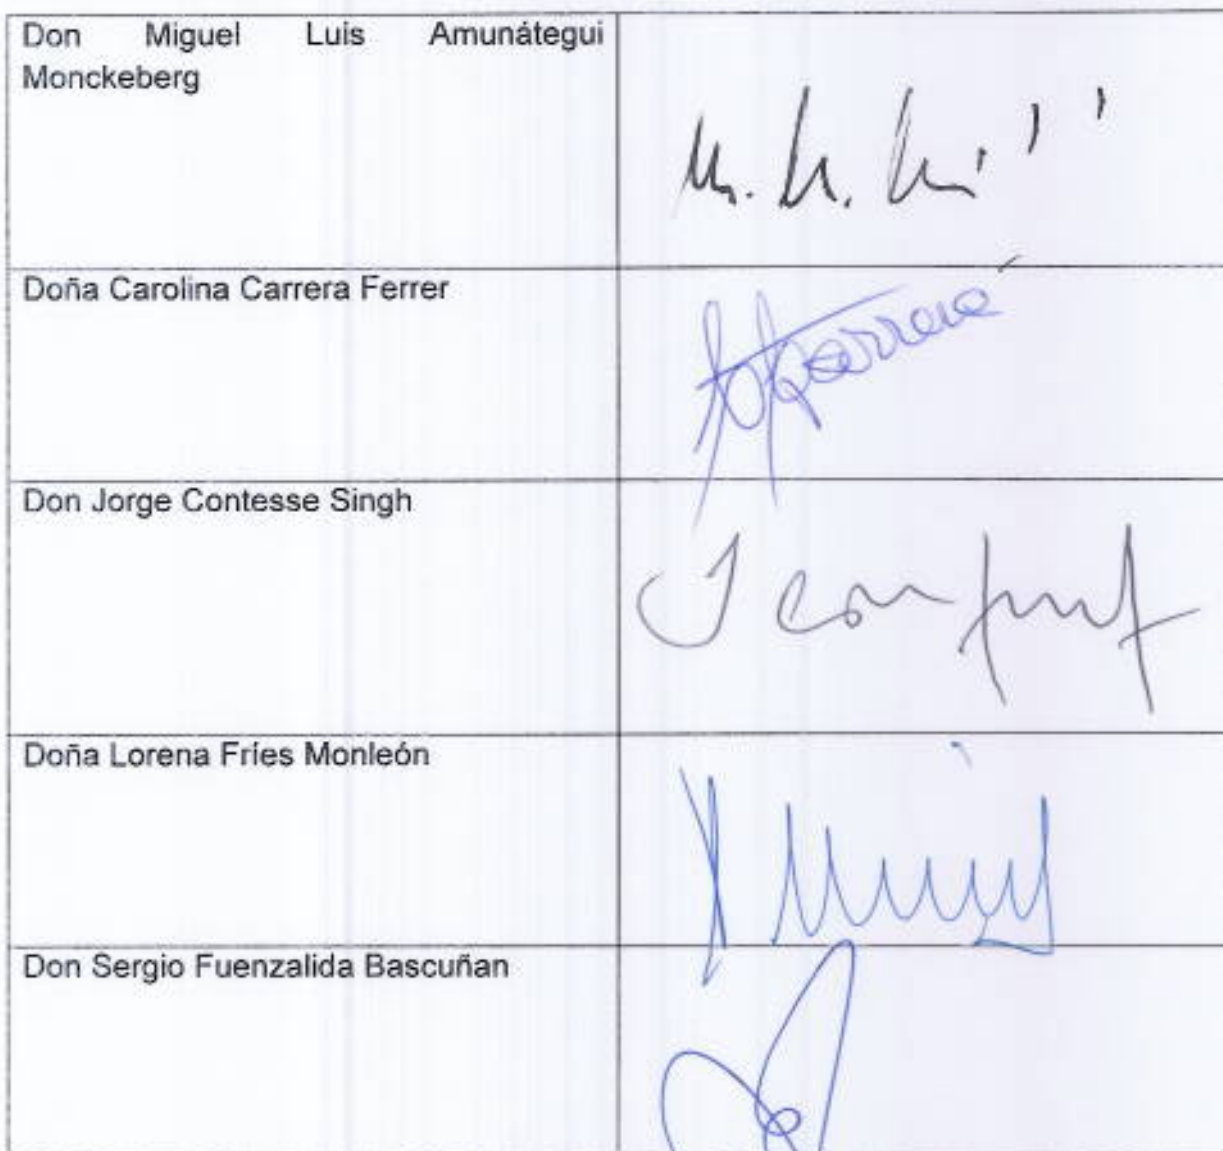 Don Miguel Luis Amunátegui
Monckeberg
Doña Carolina Carrera Ferrer
Don Jorge Contesse Singh
Doña Lorena Fríes Monleón
Don Sergio Fuenzalida Bascuñan